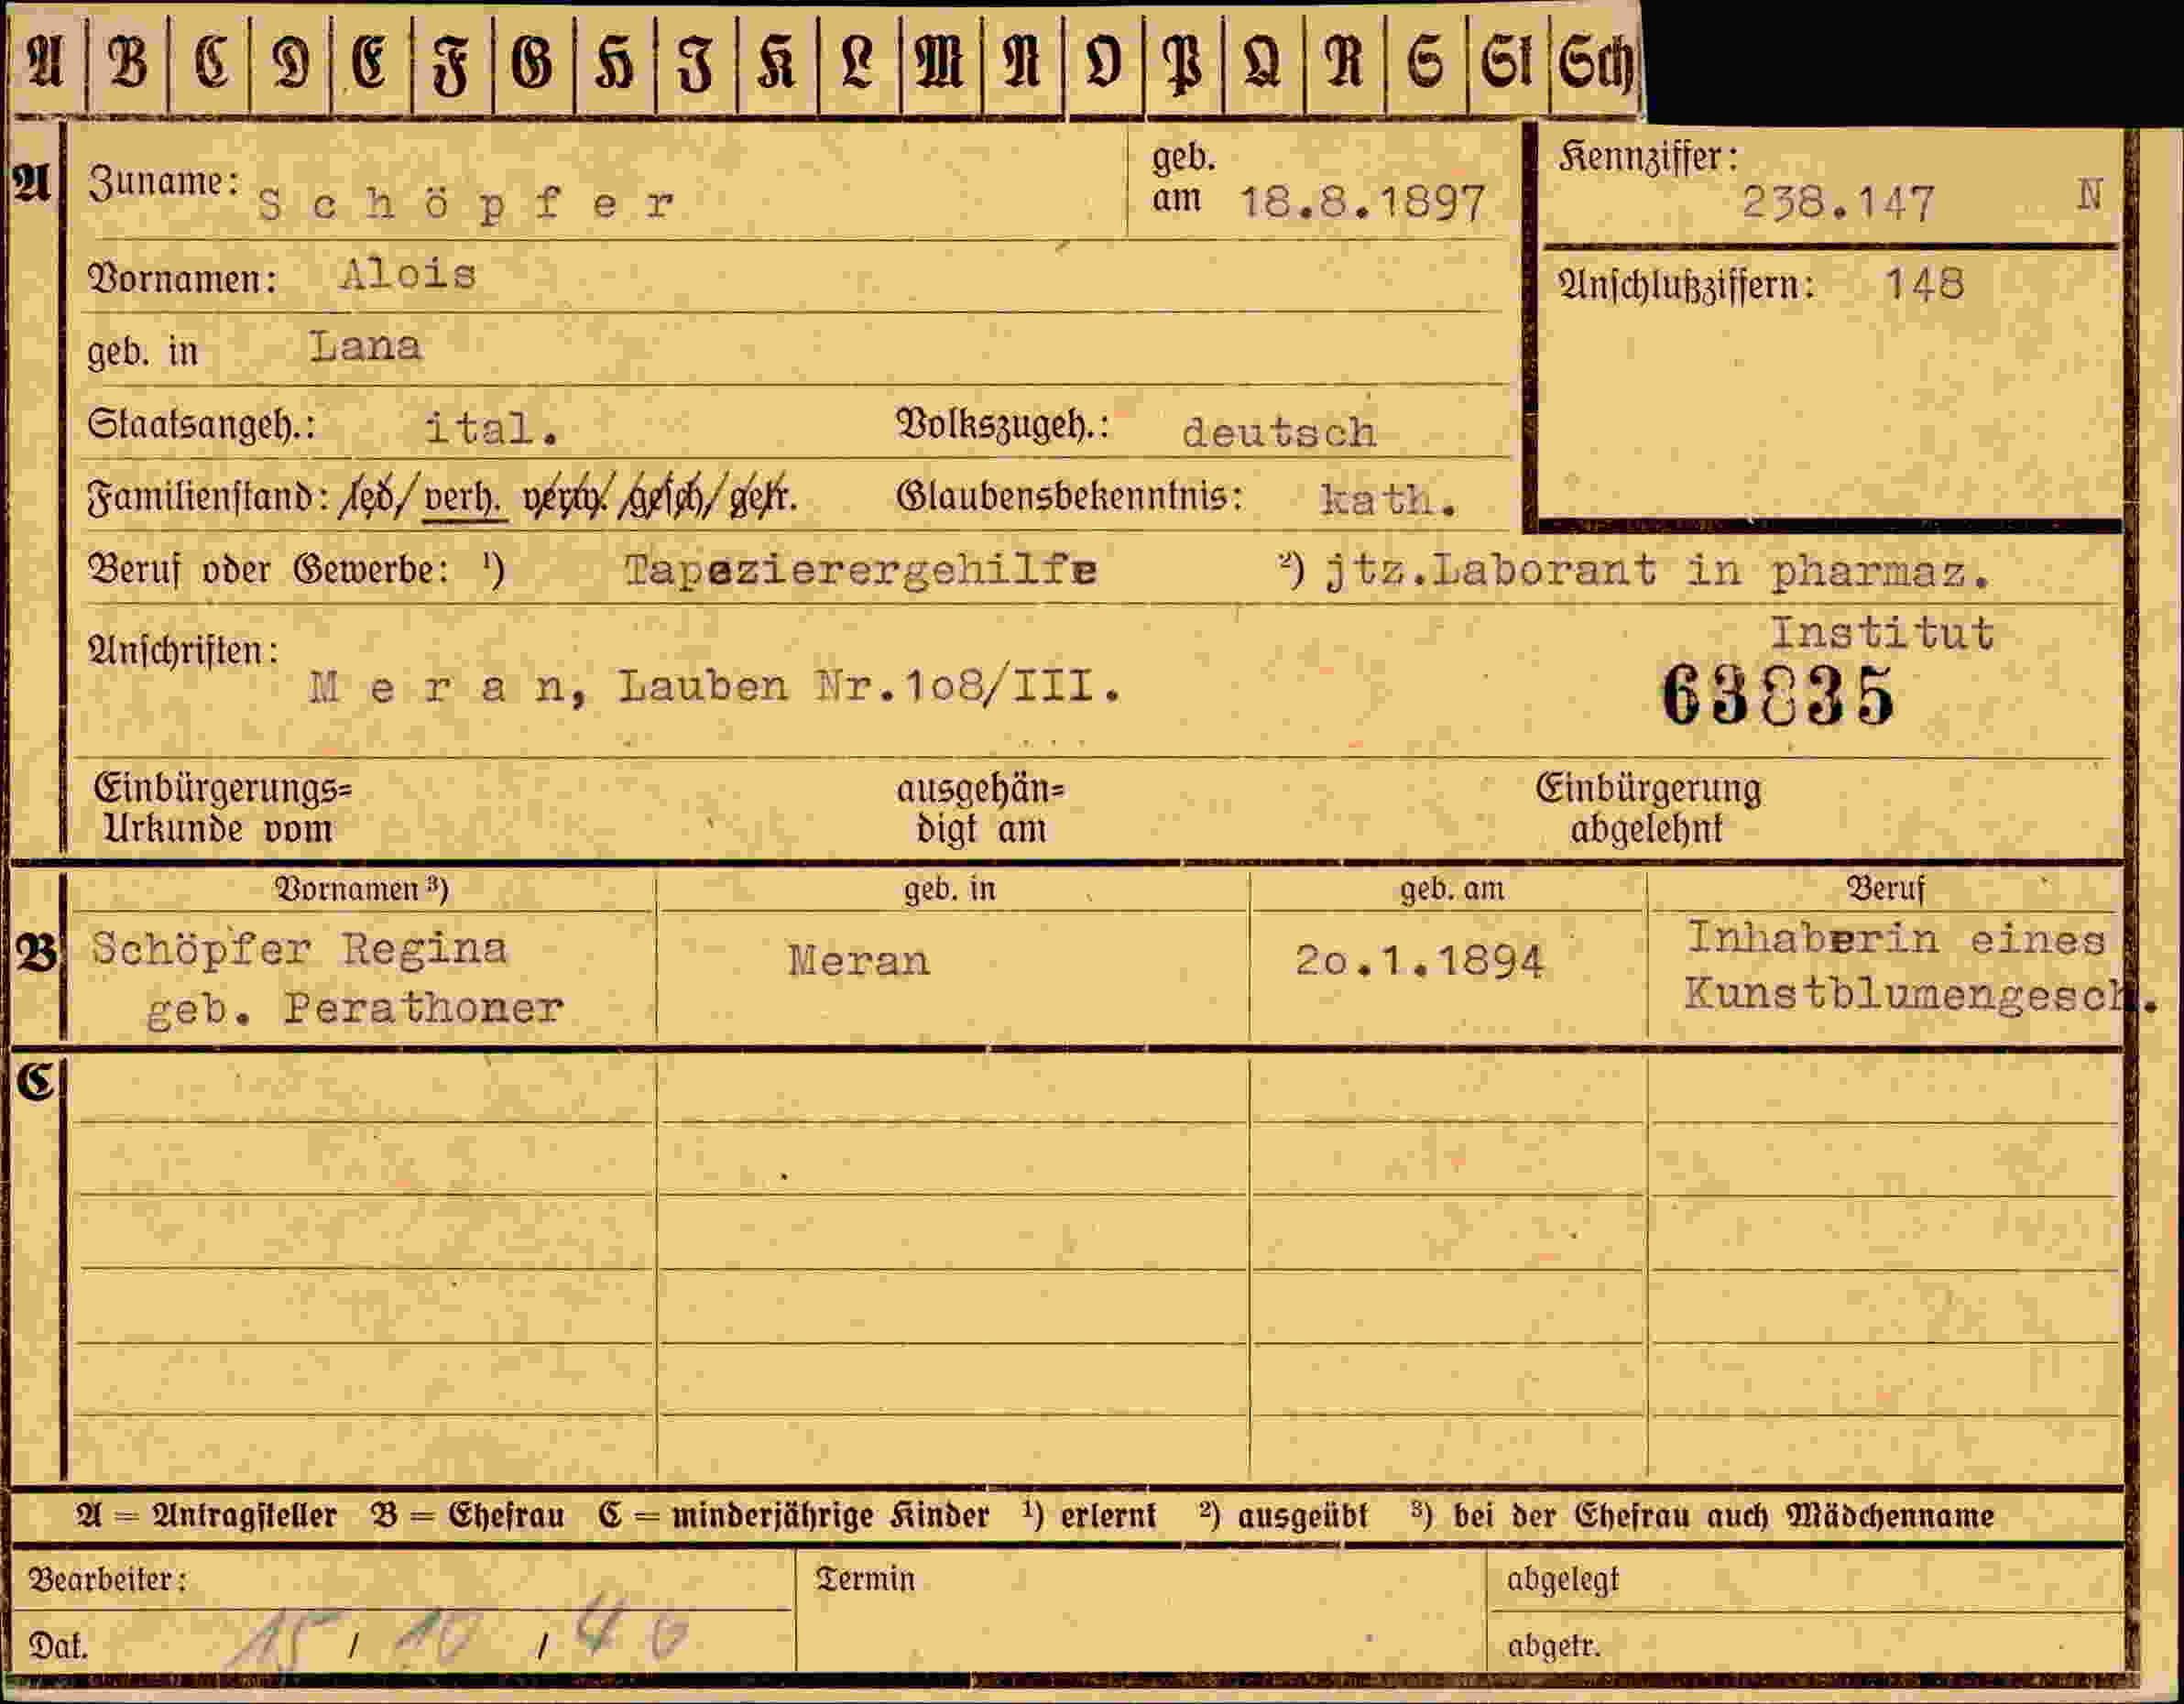 A B C D E F G H I K L M N O P Q R S St Sch
A Zuname: Schöpfer geb. am 18.8.1897 Kennziffer: 238.147 N
Vornamen: Alois Anschlußziffern: 148
geb. in Lana
Staatsangeh.: ital. Volkszugeh.: deutsch
Familienstand: led/ verh. verw. /gesch/ getr. Glaubensbekenntnis: kath.
Beruf oder Gewerbe: ¹) Tapezierergehilfe ²) jtz.Laborant in pharmaz.
Institut
Anschriften:
Meran, Lauben Nr.1o8/III. 63835
Einbürgerungs= ausgehän= Einbürgerung
Urkunde vom digt am abgelehnt
Vornamen ³) geb. in geb. am Beruf
B Schöpfer Regina Meran 2o.1.1894 Inhaberin eines
geb. Perathoner Kunstblumengesch.
C
A = Antragsteller B = Ehefrau C = minderjährige Kinder ¹) erlernt ²) ausgeübt ³) bei der Ehefrau auch Mädchenname
Bearbeiter: Termin abgelegt
Dat. 15 / 10 / 40 abgetr.